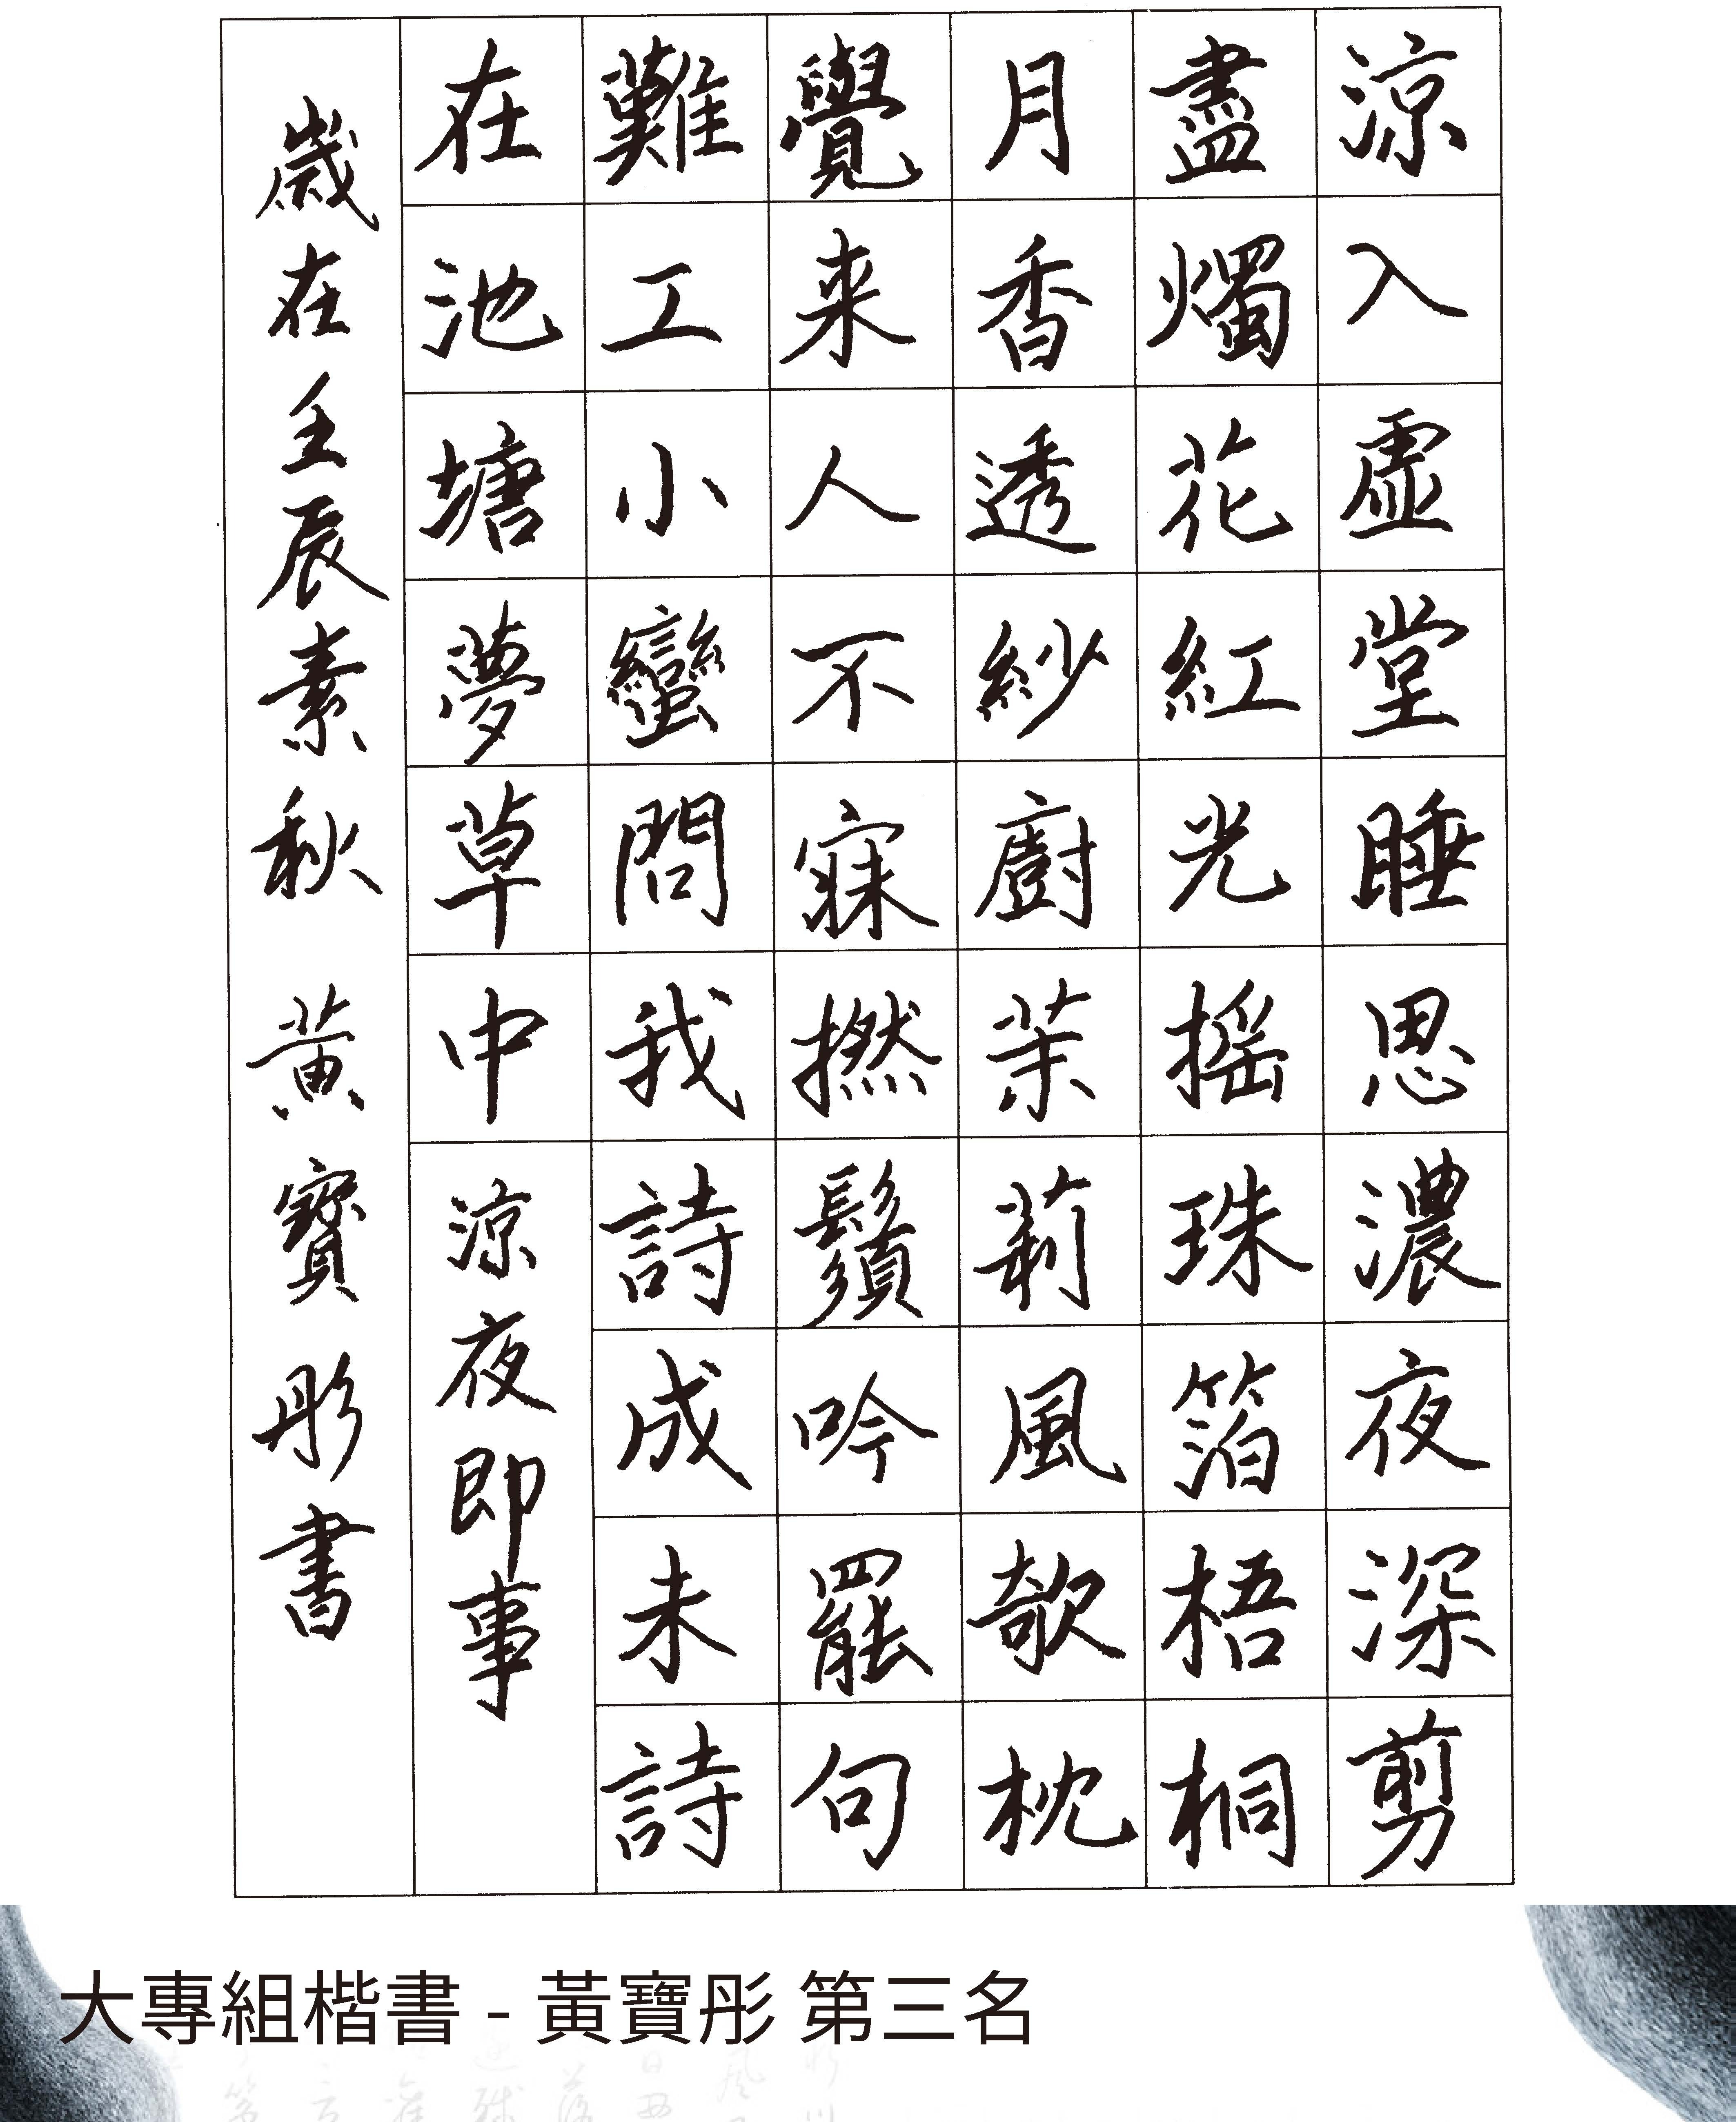 涼入虛堂睡思濃夜深剪
盡燭花紅光搖珠箔梧桐
月香透紗廚茉莉風欹枕
覺来人不寐撚鬚吟罷句
難工小蠻問我詩成未詩
在池塘夢草中涼夜即事
歲在壬辰素秋 黃寶彤書
大專組楷書 - 黃寶彤 第三名